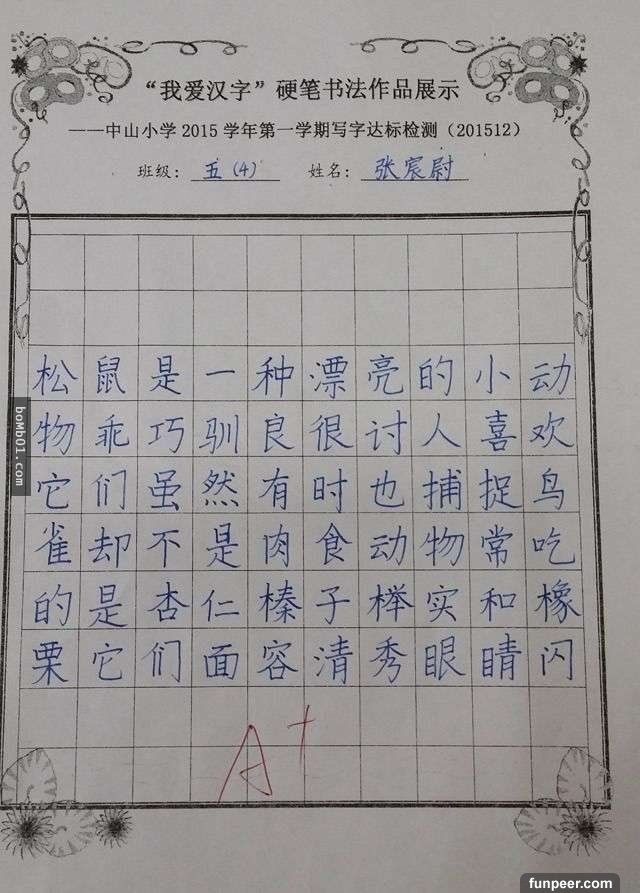 “我爱汉字”硬笔书法作品展示
——中山小学2015学年第一学期写字达标检测（201512）
班级：五（4） 姓名：张宸尉
松鼠是一种漂亮的小动
物乖巧驯良很讨人喜欢
它们虽然有时也捕捉鸟
雀却不是肉食动物常吃
的是杏仁榛子榉实和橡
栗它们面容清秀眼睛闪
A+
boMb01.com
funpeer.com